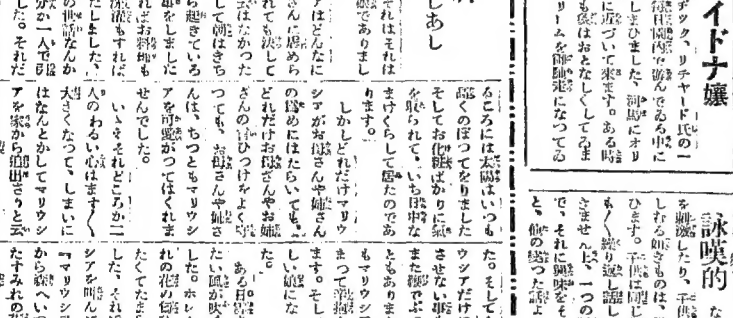 イドナ孃
チツク、リチヤード氏の一
毎日園內で遊んでゐる中に
しまひました、河馬にオリ
に近づいて來ます。ある時
も象はおとなしくしてゐま
リームを御馳走になつてゐ
詠嘆的
を刺激したり、子供
しむる如きものは、
ひます。子供は同じ
も〱繰り返し話し
きません上、一つの
で、それに興味をそ
と、他の變つた話よ
しあし
それはそれは
娘でありまし
アはどんなに
さんに虐めら
れても決して
云はなかつた
して朝はきち
ら起きていろ
事をしました
ればお料理も
洗濯もすれば
たしました、
の世話なんか
分か一人で引
した。それだ
るころには太陽はいつも
高くのぼつてをりました
そしてお化粧ばかりに氣
を取られて、いち日中な
まけくらして居たのであ
ります。
しかしどれだけマリウ
シアがお母さんや姉さん
の爲めにはたらいても、
どれだけお母さんやお姉
さんの言ひつけをよく守
つても、お母さんや姉さ
んは、ちつともマリウシ
アを可愛がつてはくれま
せんでした。
いゝえそれどころか二
人のわるい心はます〱
大きくなつて、しまいに
はなんとかしてマリウシ
アを家から追出さうと云
た。そして
ウシアだけ
させない事
また鞭でぶ
ともありま
もマリウシ
まつて辛抱
ます。そし
しい娘にな
た。
ある日
たい風が吹
した。ホレ
れの花の
たくてたま
した、それ
シアを叫ん
『マリウシ
から森へい
たすみれの